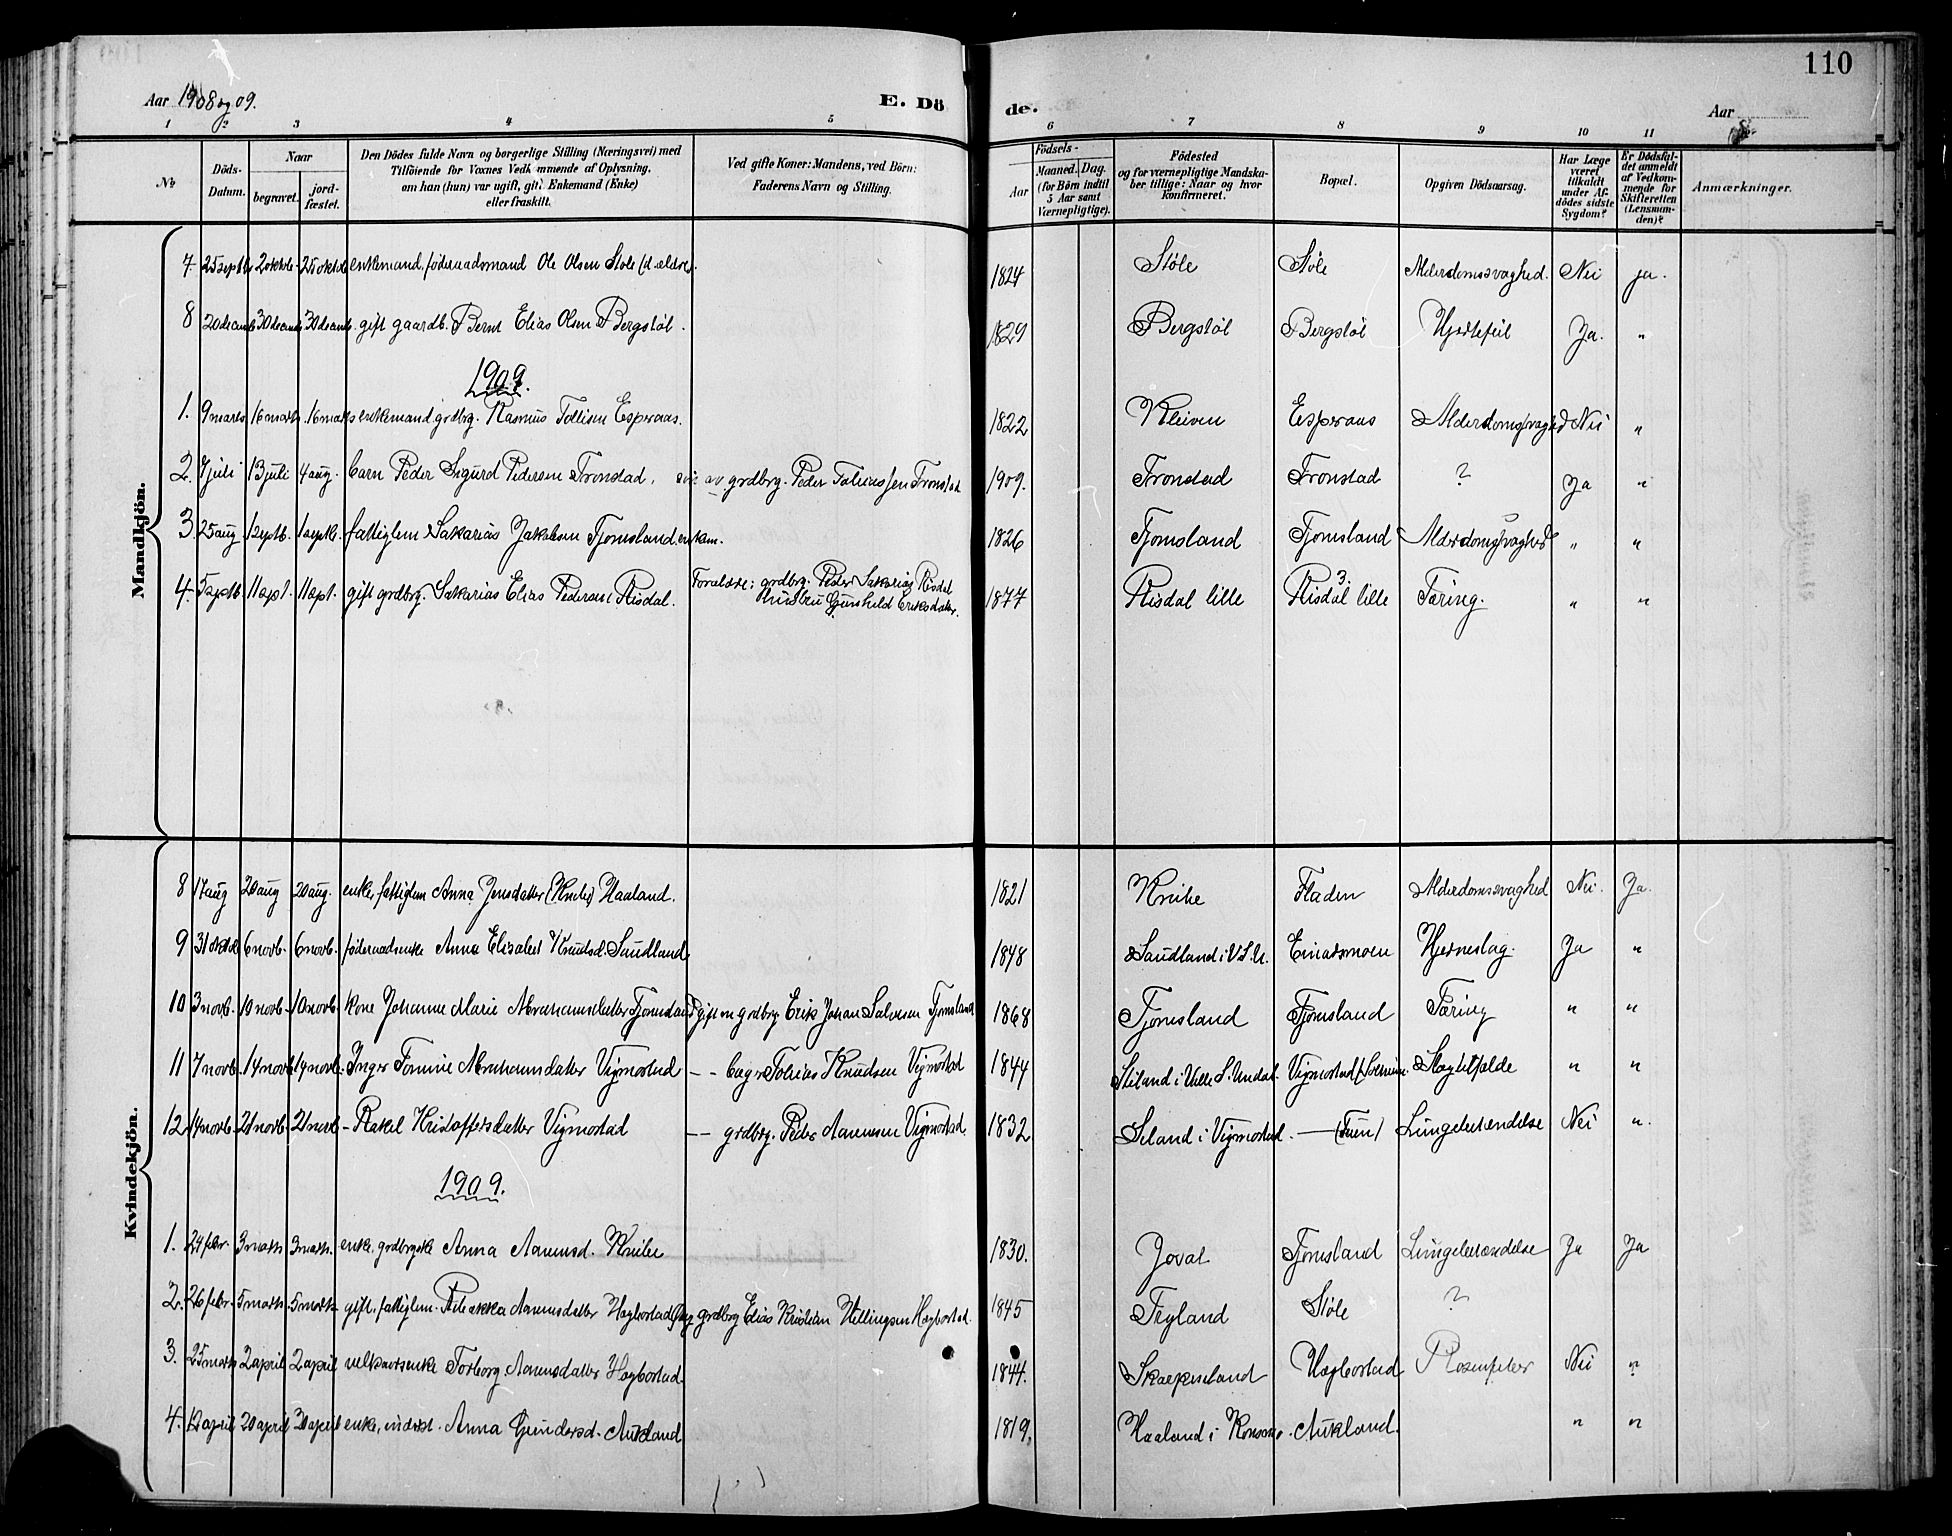 110
Aar 1908 og 09. E. Dö de. Aar
1 2 3 4 5 6 7 8 9 10 11
No Döds-Datum. Naar begravet. jord-fæstet. Den Dödes fulde Navn og borgerlige Stilling (Næringsvei) med Tilföiende for Voxnes Vedkommende af Oplysning, om han (hun) var ugift, gift, Enkemand (Enke) eller fraskilt. Ved gifte Koner: Mandens, ved Börn: Faderens Navn og Stilling. Födsels- Aar Maaned. Dag. (for Börn indtil 5 Aar samt Værnepligtige). Födested og for værnepligtige Mandskaber tillige: Naar og hvor konfirmeret. Bopæl. Opgiven Dödsaarsag. Har Læge været tilkaldt under Afdödes sidste Sygdom? Er Dödsfaldet anmeldt af Vedkommende for Skifteretten (Lensmanden)? Anmærkninger.
Mandkjön.
7. 25 septb 2 oktob. 25 oktob enkemand, föderaadsmand Ole Olsen Støle (d. ældre). 1824 Støle Støle Alderdomssvaghed. Nei ja.
8 20 decemb 30 decemb 30 decemb. gift gaardb. Bernt Elias Olsen Bergstøl. 1829 Bergstøl Bergstøl Hjertefeil Ja. "
1909.
1. 9 marts 16 marts 16 marts enkemand grdbrg. Rasmus Tollisen Esperaas. 1822 Kleiven Esperaas Alderdomssvaghed Nei "
2. 7 juli 13 juli 4 aug. barn Peder Sigurd Pedersen Tronstad, av grdbrg. Peder Tobiassen Tronstad 1909. Tronstad Tronstad ? Ja "
3. 25 aug 1 septb. 1 septb. fattiglem Sakarias Jakobsen Fjomsland, enkem. 1826 Fjomsland Fjomsland Alderdomssvaghed " "
4. 5 septb. 11 sept. 11 sept. gift grdbrg. Sakarias Elias Pedersen Risdal. Forældre: grdbrg. Peder Sakarias Risdal Hustru Gunhild Eriksdatter. 1877 Risdal lille Risdal lille Tæring. " "
Kvindekjön.
8 17 aug 20 aug 20 aug. enke, fattiglem Anna Jensdatter (Knibe) Haaland. 1821 Knibe Fladen Alderdomssvaghed Nei. Ja.
9 31 oktob 6 novb. 6 novb. föderaadsenke Anna Elisabet Knudsd. Saudland 1848 Saudland i V.S.U. Einarsmoen Hjerneslag. Ja "
10 3 novb. 10 novb. 10 novb. kone Johanne Marie Abrahamsdatter Fjomsland gift m grdbrg. Erik Johan Salvesen Fjomsland 1868 Fjomsland Fjomsland Tæring " "
11 7 novb. 14 novb 14 novb. Inger Tomine Abrahamsdatter Vigmostad – – bager Tobias Knudsen Vigmostad 1844 Stiland i Valle S. Undal. Vigmostad Slagtilfælde " "
12 14 novb. 21 novb. 21 novb - Rakel Kristoffersdatter Vigmostad – – grdbrg. Peder Aanensen Vigmostad. 1832 Seland i Vigmostad. — (Tuen) Lungebetændelse Nei "
1909.
1. 24 febr. 3 marts 3 marts. enke, Anna Aanensd. Knibe 1830. Jovat Fjomsland Lungebetændelse Ja Ja
2. 26 febr. 5 marts. 5 marts gift, fattiglem Rebakka Aanensdatter Høgbostad grdbrg Elias Kristian Hellingsen Høgbostad. 1845 Tryland Støle ?
3. 25 marts 2 april 2 april enke Torborg Aanensdatter Høgbostad. 1844. Skarpeland Høgbostad Rosenfeber Nei "
4. 12 april 20 april 20 april enke, inderst Anna Gundersd. Aukland 1819. Haaland i Konsmo. Aukland. " "